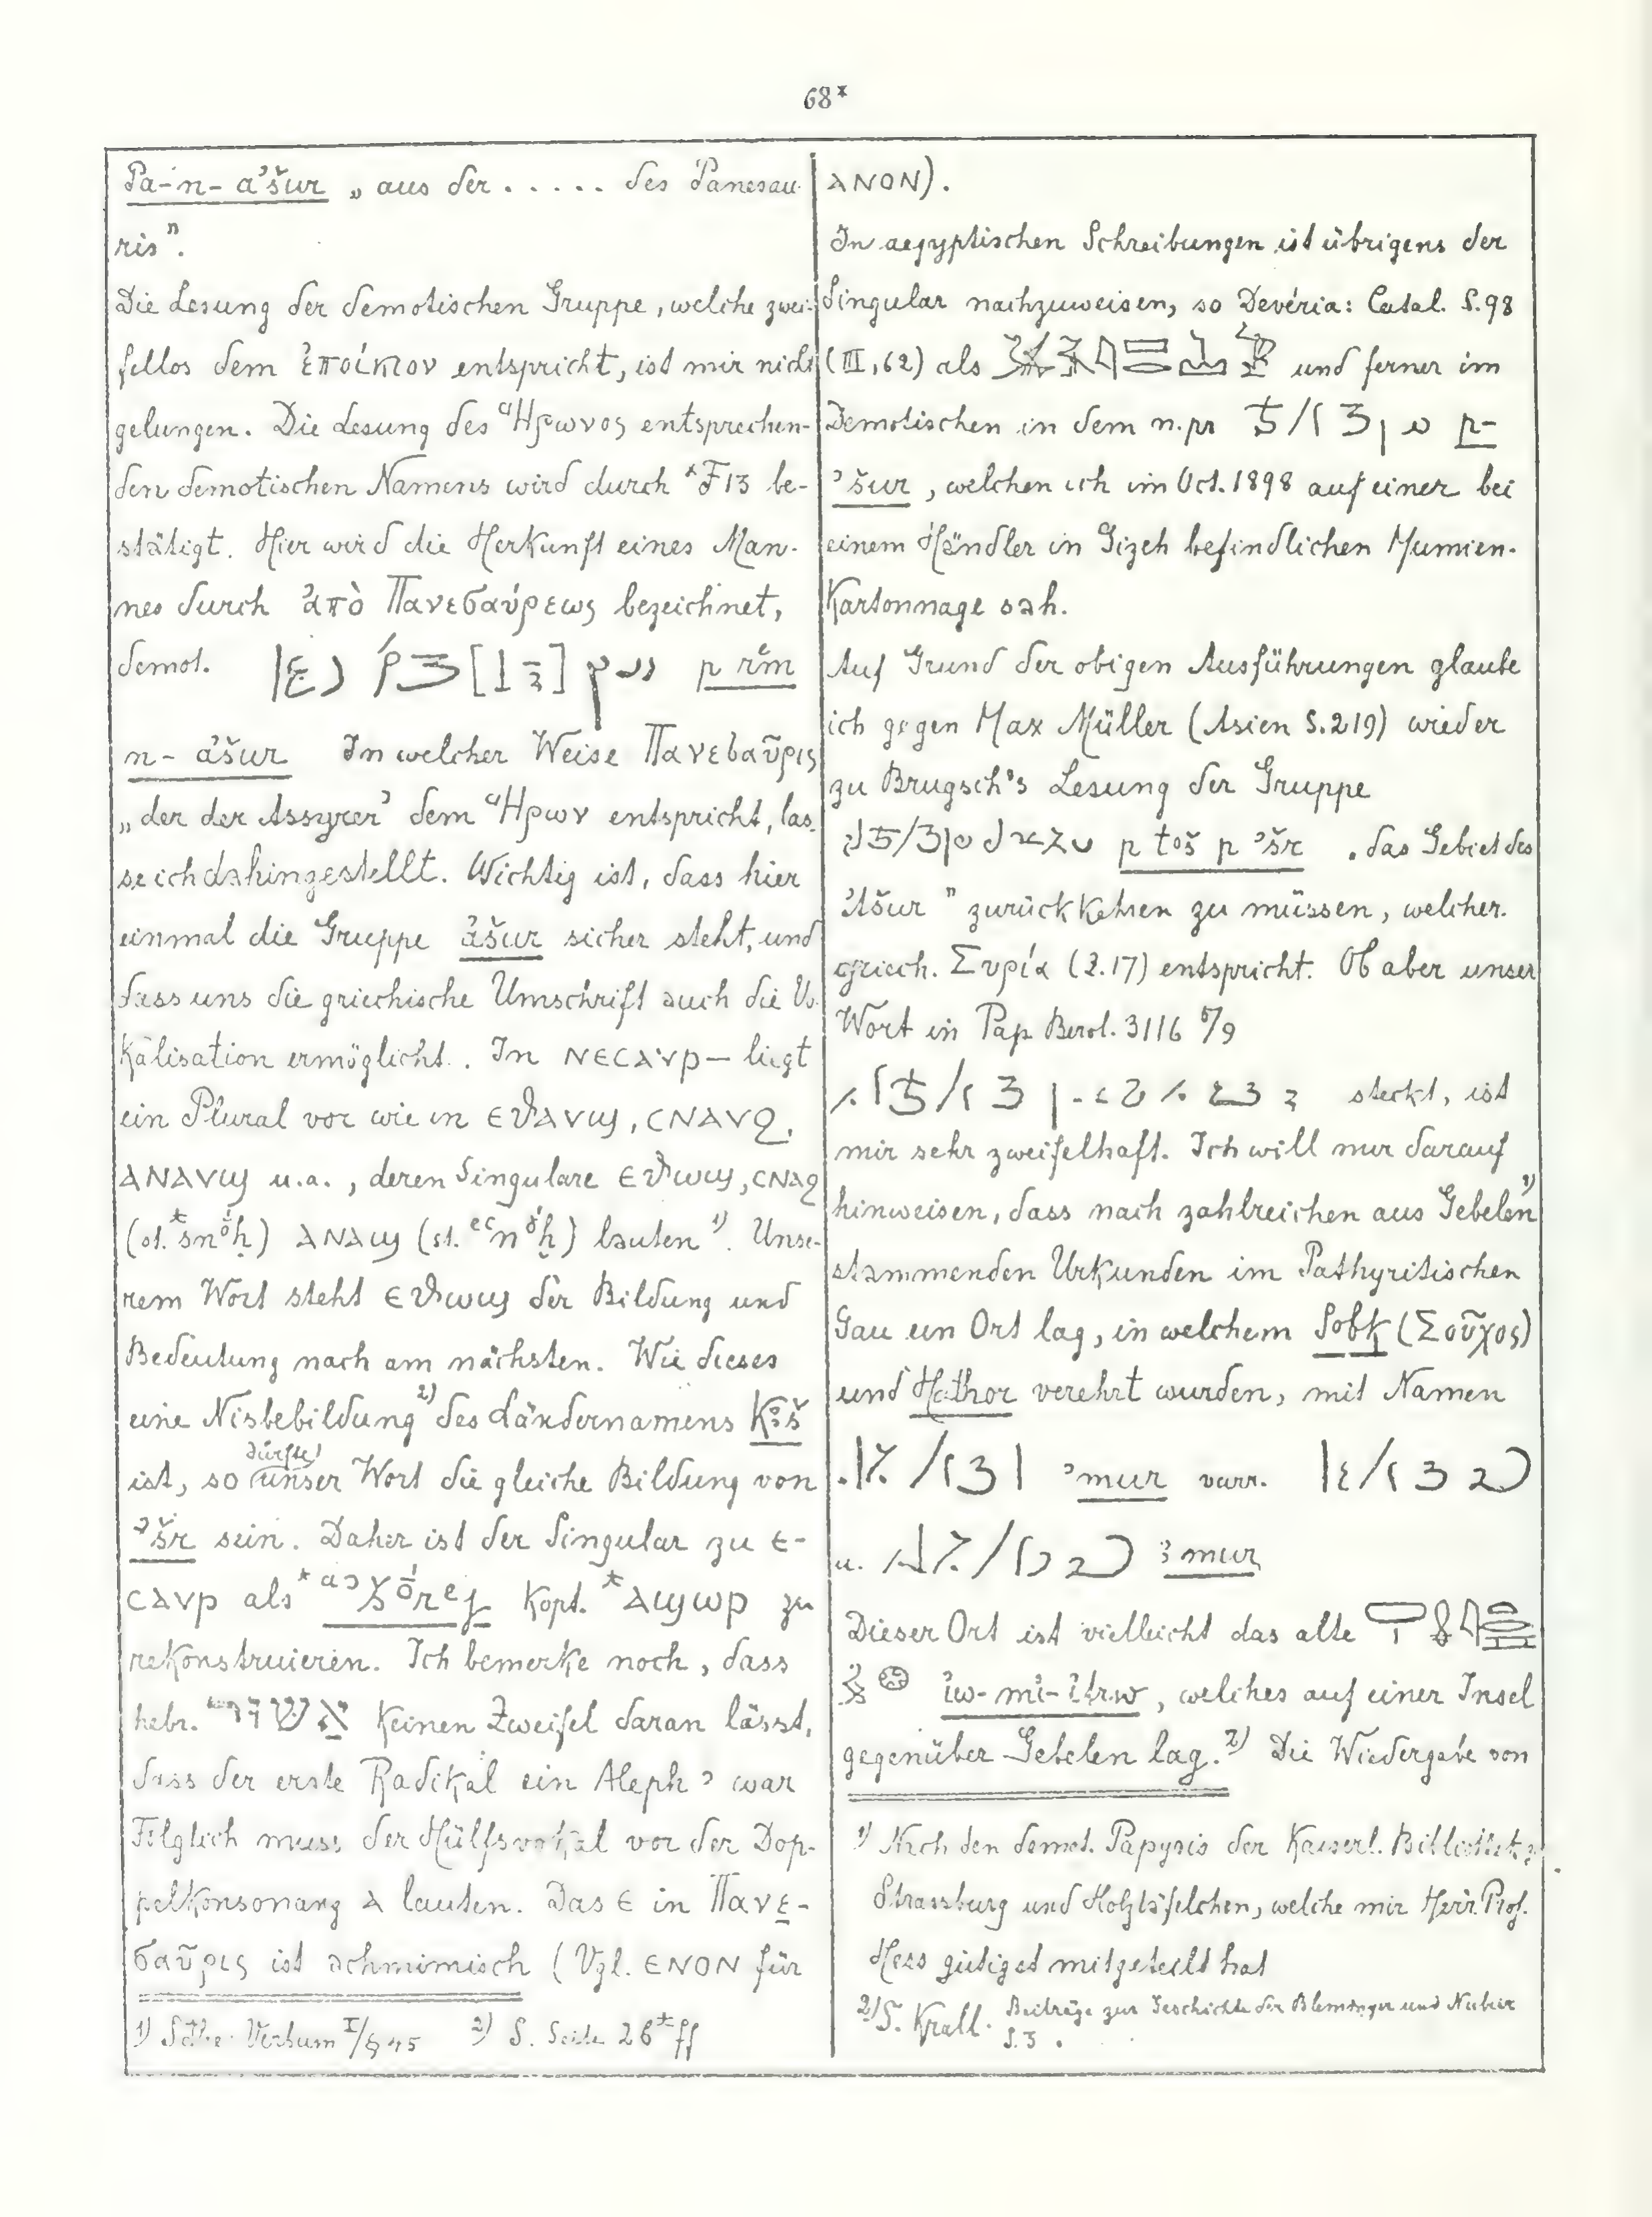 68*
Pa-n-a'šur „aus der ..... des Panesau-
ris".
Die Lesung der demotischen Gruppe, welche zwei-
fellos dem ἐποίκιον entspricht, ist mir nicht
gelungen. Die Lesung des Ἥρωνος entsprechen-
den demotischen Namens wird durch *F13 be-
stätigt. Hier wird die Herkunft eines Man-
nes durch ἀπὸ Πανεσαύρεως bezeichnet,
demot. p rm
n-a'šur In welcher Weise Πανεσαῦρις
„der der Assyrer" dem Ἥρων entspricht, las-
se ich dahingestellt. Wichtig ist, dass hier
einmal die Gruppe a'šur sicher steht, und
dass uns die griechische Umschrift auch die Vo-
kalisation ermöglicht. In ⲛⲉⲥⲁⲩⲣ— liegt
ein Plural vor wie in ⲉϑⲁⲩϣ, ⲥⲛⲁⲩϩ,
ⲁⲛⲁⲩϣ u.a., deren Singulare ⲉϑⲱϣ, ⲥⲛⲁϩ
(st. *snŏḥ) ⲁⲛⲁϣ (st. ) lauten 1). Unse-
rem Wort steht ⲉϑⲱϣ der Bildung und
Bedeutung nach am nächsten. Wie dieses
eine Nisbebildung 2) des Ländernamens Kꜣš
ist, so dürfte unser Wort die gleiche Bildung von
ꜣšr sein. Daher ist der Singular zu ⲉ-
ⲥⲁⲩⲣ als Kopt. *ⲁϣⲱⲣ zu
rekonstruieren. Ich bemerke noch, dass
hebr. אשור keinen Zweifel daran lässt,
dass der erste Radikal ein Aleph ꜣ war
Folglich muss der Hülfsvokal vor der Dop-
pelkonsonanz ⲁ lauten. Das ⲉ in Πανε-
σαῦρις ist achmimisch (Vgl. ⲉⲛⲟⲛ für
1) Sethe: Verbum I/§ 45 2) S. Seite 26* ff
ⲁⲛⲟⲛ).
In aegyptischen Schreibungen ist übrigens der
Singular nachzuweisen, so Devéria: Catal. S. 98
(III, 62) als und ferner im
Demotischen in dem n.pr p-
ꜣšur, welchen ich im Oct. 1898 auf einer bei
einem Händler in Gizeh befindlichen Mumien-
Kartonnage sah.
Auf Grund der obigen Ausführungen glaube
ich gegen Max Müller (Asien S. 219) wieder
zu Brugsch's Lesung der Gruppe
p toš p ꜣšr „das Gebiet des
ꜣAšur" zurückkehren zu müssen, welcher
griech. Συρία (Z. 17) entspricht. Ob aber unser
Wort in Pap Berol. 3116 6/9
steckt, ist
mir sehr zweifelhaft. Ich will nur darauf
hinweisen, dass nach zahlreichen aus Gebelen 1)
stammenden Urkunden im Pathyritischen
Gau ein Ort lag, in welchem Sobk (Σοῦχος)
und Hathor verehrt wurden, mit Namen
ꜣmur varr.
u. ꜣmur
Dieser Ort ist vielleicht das alte
ỉw-mỉ-ỉtrw, welches auf einer Insel
gegenüber Gebelen lag. 2) Die Wiedergabe von
1) Nach den demot. Papyris der Kaiserl. Bibliothek z.
Strassburg und Holztäfelchen, welche mir Herr Prof.
Hess gütigst mitgeteilt hat
2) S. Krall. Beiträge zur Geschichte der Blemyer und Nubier
S. 3.